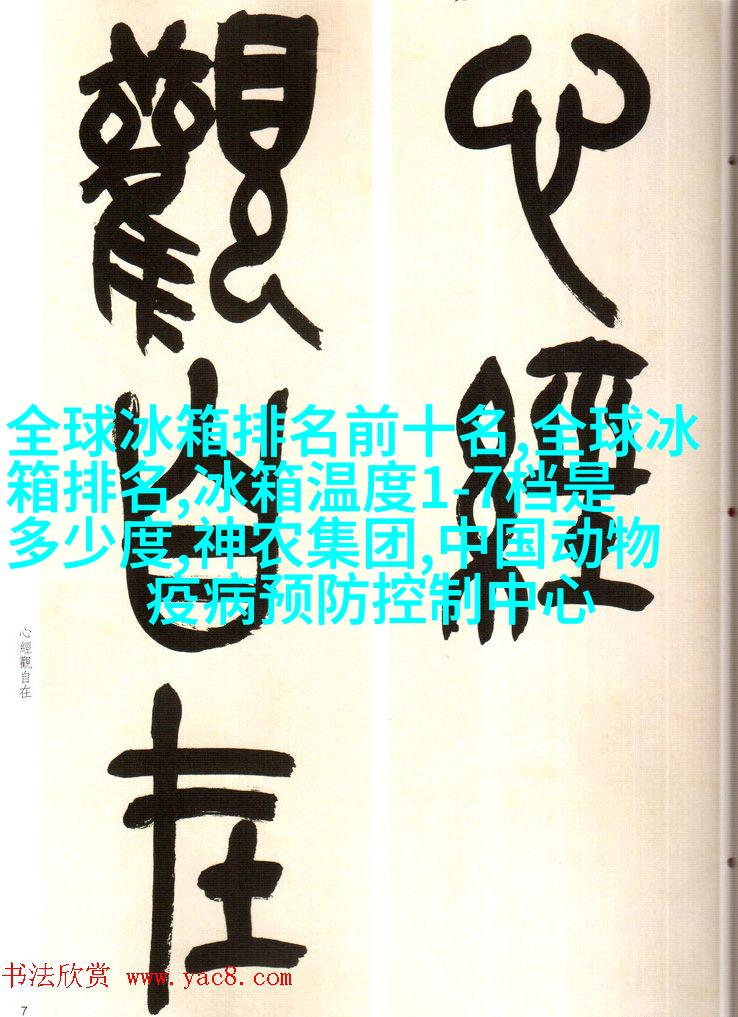 心經
觀自在
全球冰箱排名前十名,全球冰
箱排名,冰箱温度1-7档是
多少度,神农集团,中国动物
疫病预防控制中心
心經觀自在
书法欣赏 www.yac8.com
7